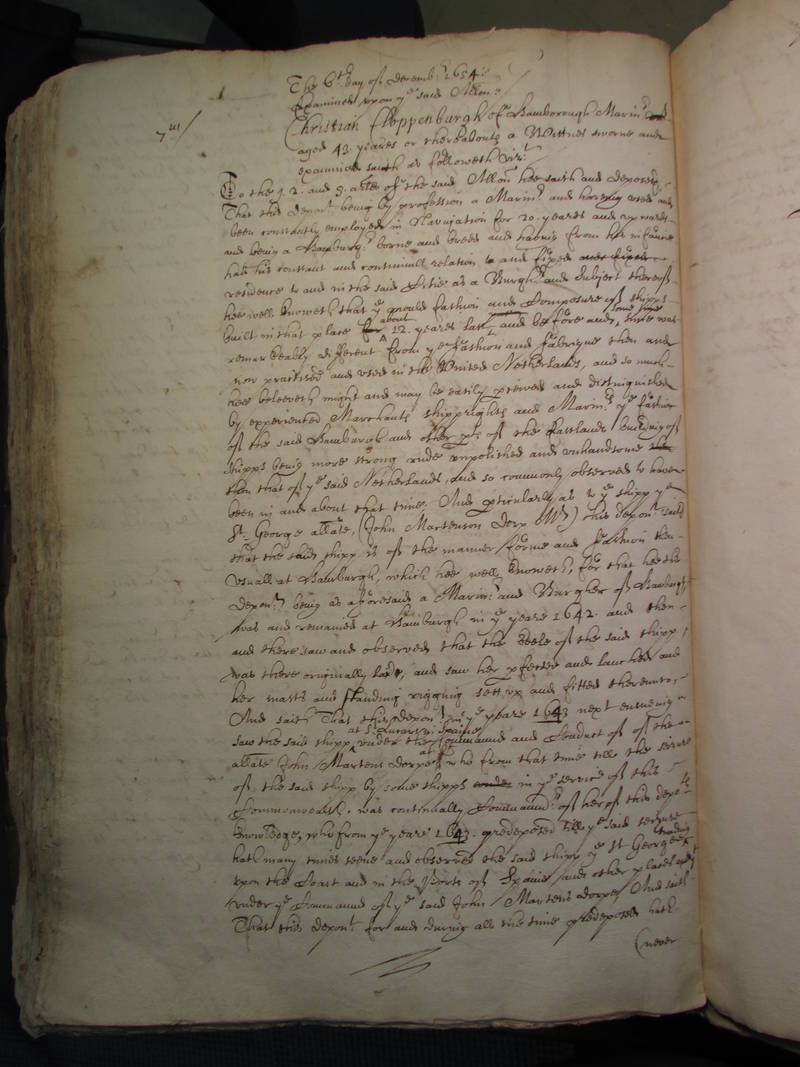 The 6th day of decemb.r 1654.
Examined upon ye said Allon.
7us/
Christian Cloppenburgh of Hamborough Marinr
aged 43. yeares or thereabouts a Wittnes sworne and
examined saith as followeth vizt.
To the 1. 2. and 3. arles of the said Allon hee saith and deposeth
That this depont being by profession a Marinr and having used and
been constantly employed in Navigation for 20. yeares and upwards
and being a Hamburgr borne and breed and having from his infancie
had his constant and continuall relation to and fixed
residence to and in the said Citie as a Burghr and Subject thereof
hee well knoweth that ye mould fashion and Composure of shipps
built in that place about 12. yeares last and before and some time was
remarkeably different from ye fashion and fabrique then and
now practised and used in the United Netherlands, and so much
hee beleeveth might and may be easily pceived and distinguished
by experienced Marchants shippwrights and Marinrs ye fashion
of the said Hamburgh and other pts of the Eastlands building of
shipps being more strong rude unpolished and unhandsome
then that of ye said Netherlands, and so commonly observed to have
been in and about that time. And pticularly as to ye shipp ye
St. George allate, (John Martenson Dorp Mr) this depont saith
that the said shipp is of the manner forme and fashion then
usuall at Hamburgh, which hee well knoweth, for that hee this
depont being as aforesaid a Marinr and Burgher of Hamburgh
was and remained at Hamburgh in ye yeare 1642. and then
and there saw and observed that the keele of the said shipp
was there originally laid, and saw her pfected and lanched and
her masts and standing rigging sett up and fitted thereunto,
And saith That this depont in ye yeare 1643 next ensueing
saw the said shipp at St. Lucar in Spaine under the Command and Conduct of the
allate John Martens dorpe who from that time till the seizure
of the said shipp by some shipps in ye service of this
Commonwealth was continually Commandr of her of this depots
knowledge, who from ye yeare 1643. predeposed till ye said seizure
hath many times seene and observed the said shipp ye St George trading
upon the Coast and in the Ports of Spaine and other places
under ye Command of ye said John Martens dorpe, And saith
That this depont for and during all the time predeposed hath
(never